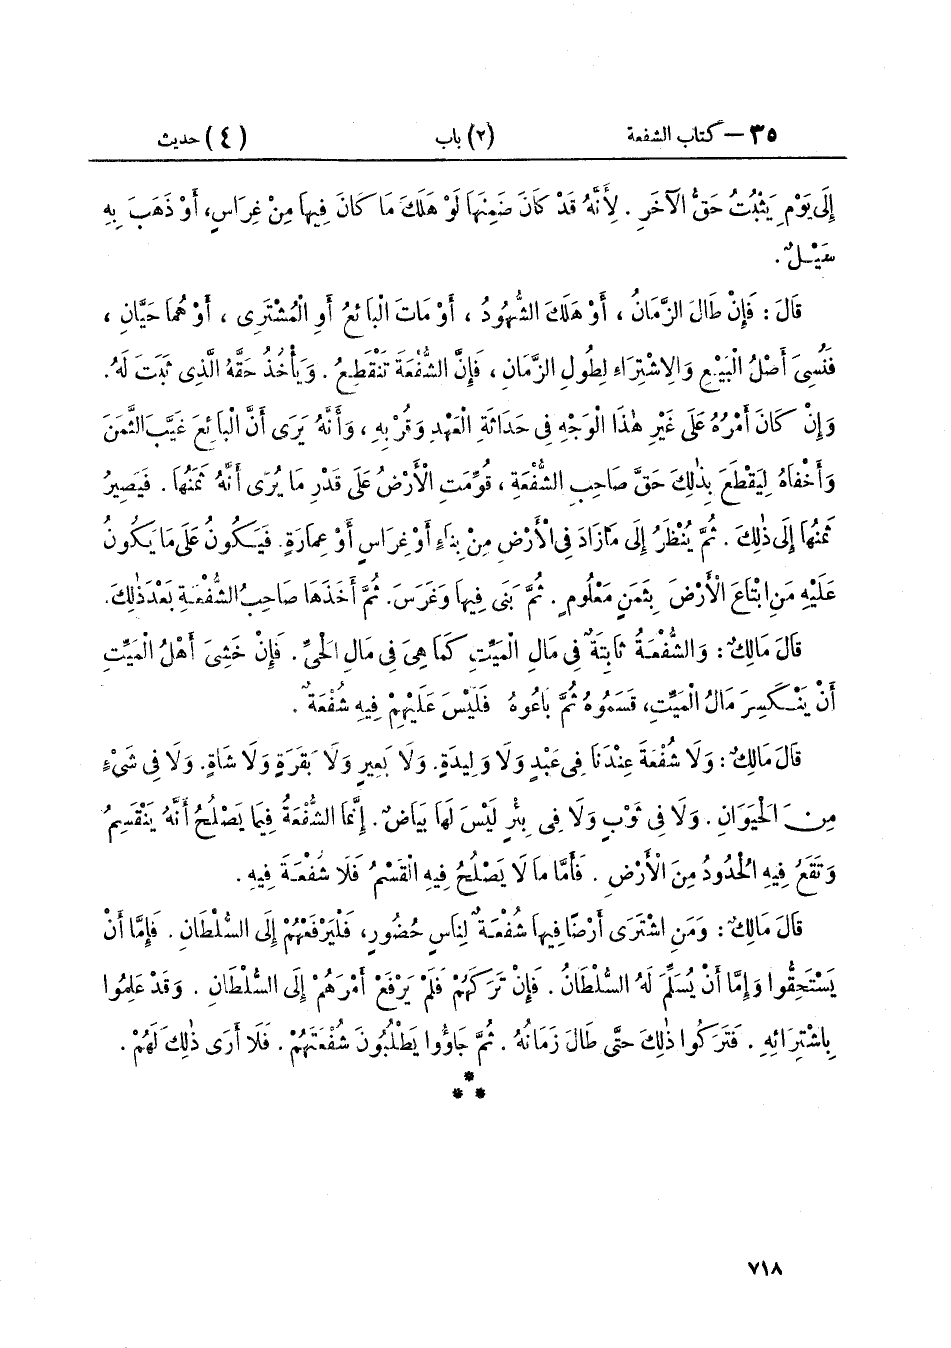 ٣٥ – كتاب الشفعة (٢) باب (٤) حديث
إِلَى يَوْمِ يَثْبُتُ حَقُّ الْآخَرِ . لِأَنَّهُ قَدْ كَانَ ضَمِنَهَا لَوْ هَلَكَ مَا كَانَ فِيهَا مِنْ غِرَاسٍ، أَوْ ذَهَبَ بِهِ
سَيْلٌ .
قَالَ : فَإِنْ طَالَ الزَّمَانُ ، أَوْ هَلَكَ الشُّهُودُ ، أَوْ مَاتَ الْبَائِعُ أَوِ الْمُشْتَرِى ، أَوْ هُمَا حَيَّانِ ،
فَنُسِىَ أَصْلُ الْبَيْعِ وَالِاشْتِرَاءِ لِطُولِ الزَّمَانِ ، فَإِنَّ الشُّفْعَةَ تَنْقَطِعُ . وَيَأْخُذُ حَقَّهُ الَّذِى ثَبَتَ لَهُ .
وَإِنْ كَانَ أَمْرُهُ عَلَى غَيْرِ هٰذَا الْوَجْهِ فِى حَدَاثَةِ الْعَهْدِ وَقُرْبِهِ ، وَأَنَّهُ يَرَى أَنَّ الْبَائِعَ غَيَّبَ الثَّمَنَ
وَأَخْفَاهُ لِيَقْطَعَ بِذٰلِكَ حَقَّ صَاحِبِ الشُّفْعَةِ ، قُوِّمَتِ الْأَرْضُ عَلَى قَدْرِ مَا يُرَى أَنَّهُ ثَمَنُهَا . فَيَصِيرُ
ثَمَنُهَا إِلَى ذٰلِكَ . ثُمَّ يُنْظَرُ إِلَى مَا زَادَ فِى الْأَرْضِ مِنْ بِنَاءٍ أَوْ غِرَاسٍ أَوْ عِمَارَةٍ. فَيَكُونُ عَلَى مَا يَكُونُ
عَلَيْهِ مَنِ ابْتَاعَ الْأَرْضَ بِثَمَنٍ مَعْلُومٍ . ثُمَّ بَنَى فِيهَا وَغَرَسَ. ثُمَّ أَخَذَهَا صَاحِبُ الشُّفْعَةِ بَعْدَ ذٰلِكَ.
قَالَ مَالِكٌ : وَالشُّفْعَةُ ثَابِتَةٌ فِى مَالِ الْمَيِّتِ كَمَا هِىَ فِى مَالِ الْحَىِّ . فَإِنْ خَشِىَ أَهْلُ الْمَيِّتِ
أَنْ يَنْكَسِرَ مَالُ الْمَيِّتِ، قَسَمُوهُ ثُمَّ بَاعُوهُ فَلَيْسَ عَلَيْهِمْ فِيهِ شُفْعَةٌ .
قَالَ مَالِكٌ : وَلَا شُفْعَةَ عِنْدَنَا فِى عَبْدٍ وَلَا وَلِيدَةٍ. وَلَا بَعِيرٍ وَلَا بَقَرَةٍ وَلَا شَاةٍ. وَلَا فِى شَىْءٍ
مِنَ الْحَيَوَانِ . وَلَا فِى ثَوْبٍ وَلَا فِى بِئْرٍ لَيْسَ لَهَا بَيَاضٌ . إِنَّمَا الشُّفْعَةُ فِيمَا يَصْلُحُ أَنَّهُ يَنْقَسِمُ
وَتَقَعُ فِيهِ الْحُدُودُ مِنَ الْأَرْضِ . فَأَمَّا مَا لَا يَصْلُحُ فِيهِ الْقَسْمُ فَلَا شُفْعَةَ فِيهِ .
قَالَ مَالِكٌ : وَمَنِ اشْتَرَى أَرْضًا فِيهَا شُفْعَةٌ لِنَاسٍ حُضُورٍ، فَلْيَرْفَعْهُمْ إِلَى السُّلْطَانِ . فَإِمَّا أَنْ
يَسْتَحِقُّوا وَإِمَّا أَنْ يُسَلِّمَ لَهُ السُّلْطَانُ . فَإِنْ تَرَكَهُمْ فَلَمْ يَرْفَعْ أَمْرَهُمْ إِلَى السُّلْطَانِ . وَقَدْ عَلِمُوا
بِاشْتِرَائِهِ . فَتَرَكُوا ذٰلِكَ حَتَّى طَالَ زَمَانُهُ . ثُمَّ جَاؤُا يَطْلُبُونَ شُفْعَتَهُمْ . فَلَا أَرَى ذٰلِكَ لَهُمْ .
*
* *
٧١٨